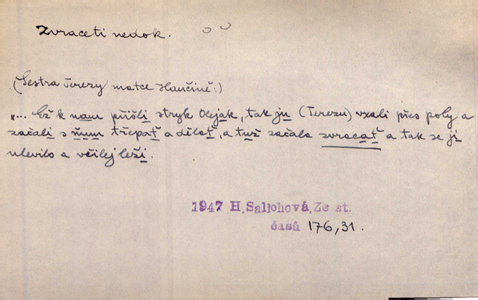 Zvraceti nedok.
(Sestra Terezy matce Hančině:)
„... Až k nam přišli stryk Olejak, tak ju (Terezu) vzali přes poly a
začali s ňum třepať a dělať, a tuž začala zvracať a tak se ji
ulevilo a včilej leži.
1947 H,Salichová,Ze st.
časů 176,31.